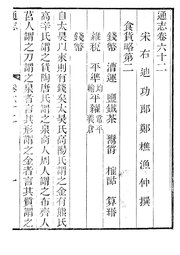 通志卷六十二
宋右迪功郎鄭樵漁仲撰
食貨略第二
錢幣 漕運 鹽鐵茶 鬻爵 榷酤 算緡
雜稅 平準均輸 平糴常平義倉
錢幣
自太昊以來則有錢矣太昊氏高陽氏謂之金有熊氏
高辛氏謂之貨陶唐氏謂之泉商人周人謂之布齊人
莒人謂之刀謂之泉者言其形謂之金者言其質謂之